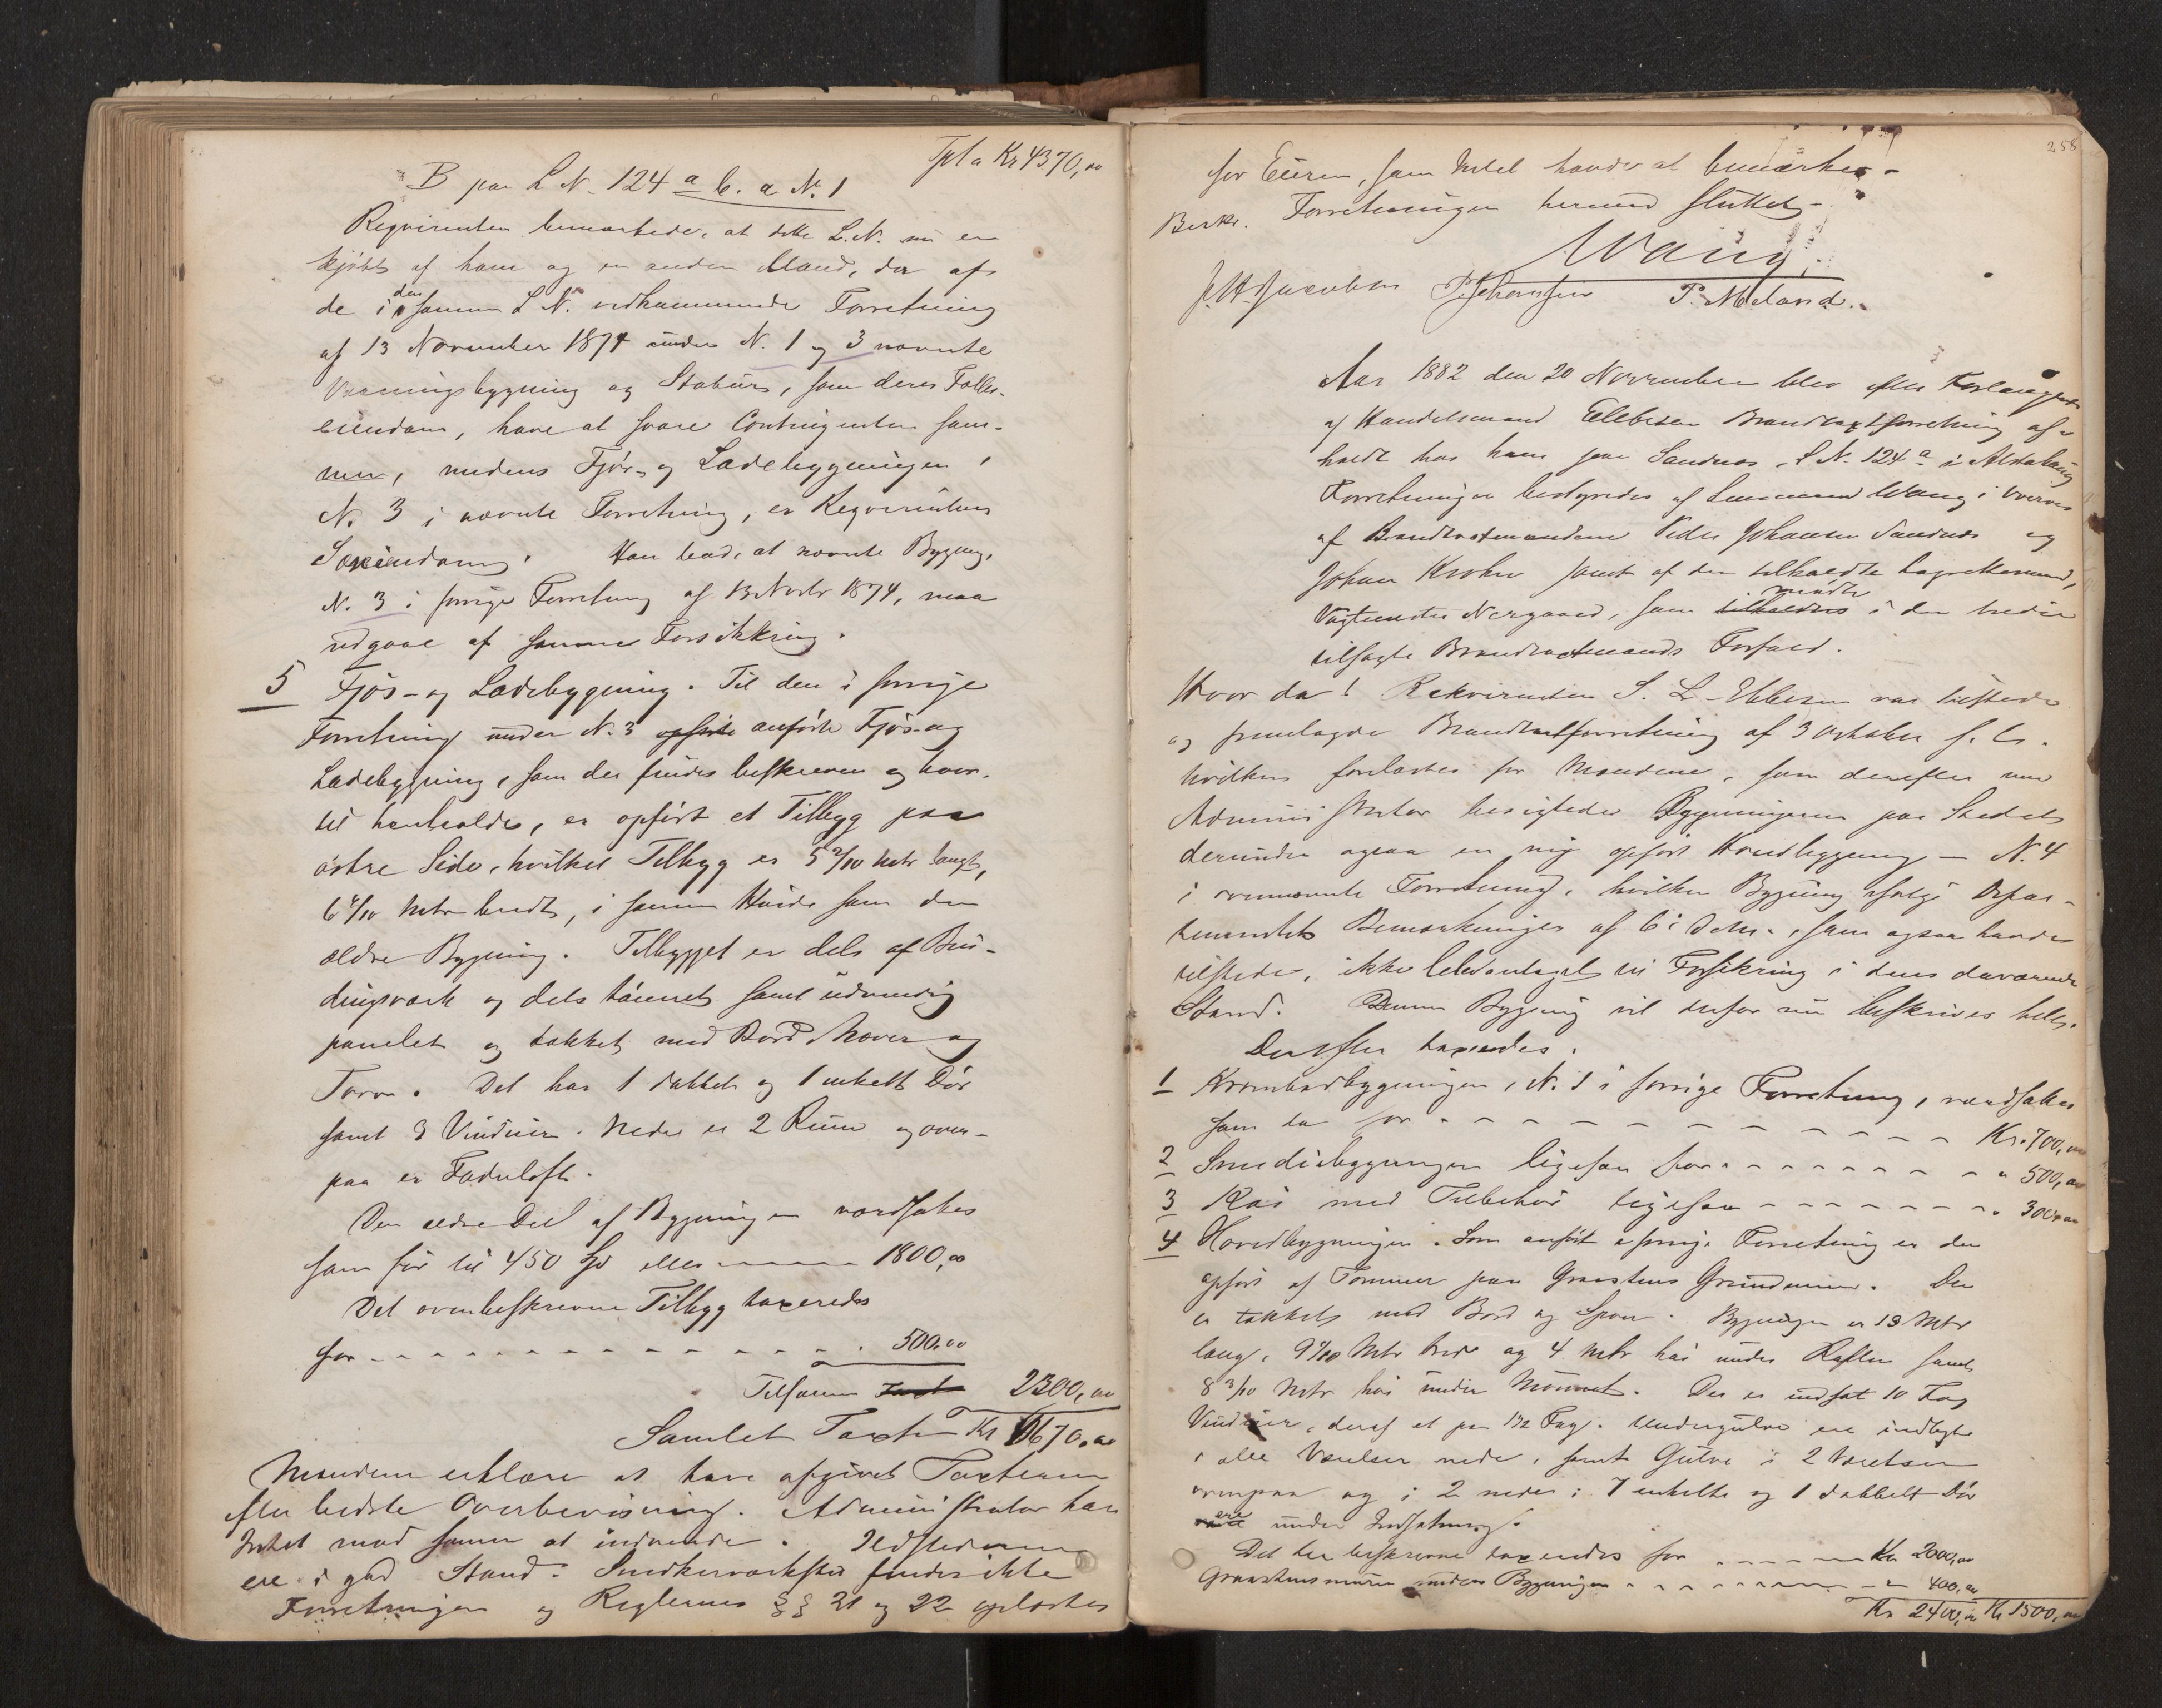 Tpt a Kr 4370,00
B paa L N. 124 a b. a N. 1
Reqvirenten bemærkede, at dette L.N. nu er
kjøbt af ham og en anden Mand, der af
de i den samme L N. vedkommende Forretning
af 13 November 1874 under N. 1 og 3 nævnte
Vaaningsbygning og Stabur, som deres Fælles-
eiendom, have at svare Contingenten sam-
men, medens Fjøs- og Ladebygningen,
N. 3 i nævnte Forretning, er Reqvirentens
Særeiendom. Han bad, at nævnte Bygning,
N. 3 i forrige Forretning af 13 Novbr 1874, maa
udgaae af samme Forsikkring.
5 Fjøs- og Ladebygning. Til den i forrige
Forretning under N. 3 opførte anførte Fjøs- og
Ladebygning, som der findes beskreven og hvor-
til henholdes, er opført et Tilbyg paa
østre Side, hvilket Tilbyg er 5 2/10 Mtr langt,
6 4/10 Mtr bredt, i samme Høide som den
ældre Bygning. Tilbygget er dels af Bin-
dingsværk og dels tømret samt udvendig
panelet og tækket med Bord Næver og
Torv. Det har 1 dobbelt og 1 enkelt Dør
samt 3 Vinduer. Nede er 2 Rum og oven-
paa er Foderloft.
Den ældre Del af Bygningen værdsattes
som før til 450 Spd eller 1800,00
Det ovenbeskrevne Tilbyg taxeredes
for 500,00
Tilsammen Taxt 2300,00
Samlet Taxt Kr 6670,00
Mændene erklære at have afgivet Taxterne
efter bedste Overbevisning. Administrator har
Intet mod samme at indvende. Ildstederne
ere i god Stand. Snedkerværksted findes ikke
Forretningen og Reglernes §§ 21 og 22 oplæstes
258
for Eieren, som Intet havde at bemærke.
Forretningen hermed sluttet.
Beskr.
Wang.
J. H. Jacobsen P. Johansen P. Meland.
Aar 1882 den 20 November blev efter Forlangende
af Handelsmand Ellebesen Brandtaxtforretning af-
holdt hos ham paa Sandnes L N. 124 a i Alstahaug
Forretningen bestyredes af Lensmand Wang i Overvær
af Brandtaxtmændene Peder Johansen Sandnes og
Johan Krohn samt af den tilkaldte Lagrettesmand,
Vagtmester Nergaard, som tilkaldtes mødte i den tredie
tilsagte Brandtaxtmands Forfald.
Hvor da! Rekvirenten S. L. Ebbesen var tilstede
og fremlagde Brandtaxtforretning af 3 Oktober f. A.
hvilken forelæstes for Mændene, som derefter med
Administrator besigtede Bygningerne paa Stedet
derunder ogsaa en ny opført Hovedbygning - N. 4
i ovennævnte Forretning, hvilken Bygning ifølge Depar-
tementets Bemærkninger af 6 i D.M., som ogsaa havdes
tilstede, ikke blev antaget til Forsikring i dens daværende
Stand. Denne Bygning vil derfor nu beskrives heller.
Derefter taxeredes:
1 Krambodbygningen, N. 1 i forrige Forretning, værdsattes
som da for Kr. 700,00
2 Smediebygningen ligesaa for " 500,00
3 Kai med Tilbehør ligesaa " 300,00
4 Hovedbygningen. Som anført i forrige Forretning er den
opført af Tømmer paa Graastens Grundmur. Den
er tækket med Bord og Spaan. Bygningen er 13 Mtr
lang, 9 4/10 Mtr bred og 4 Mtr høi under Raften samt
8 3/10 Mtr høi under Mønnet. Der er indsat 10 Fag
Vinduer, deraf et paa 1 1/2 Fag. Undergulve ere indlagte
i alle Værelser nede, samt Gulve i 2 Værelser
ovenpaa og i 2 nede; 7 enkelte og 1 dobbelt Dør
ere under Indsætning.
Det her beskrevne taxeredes for Kr 2000,00
Graastensmuren under Bygningen 400,00
Kr 2400,00 Kr 1500,00